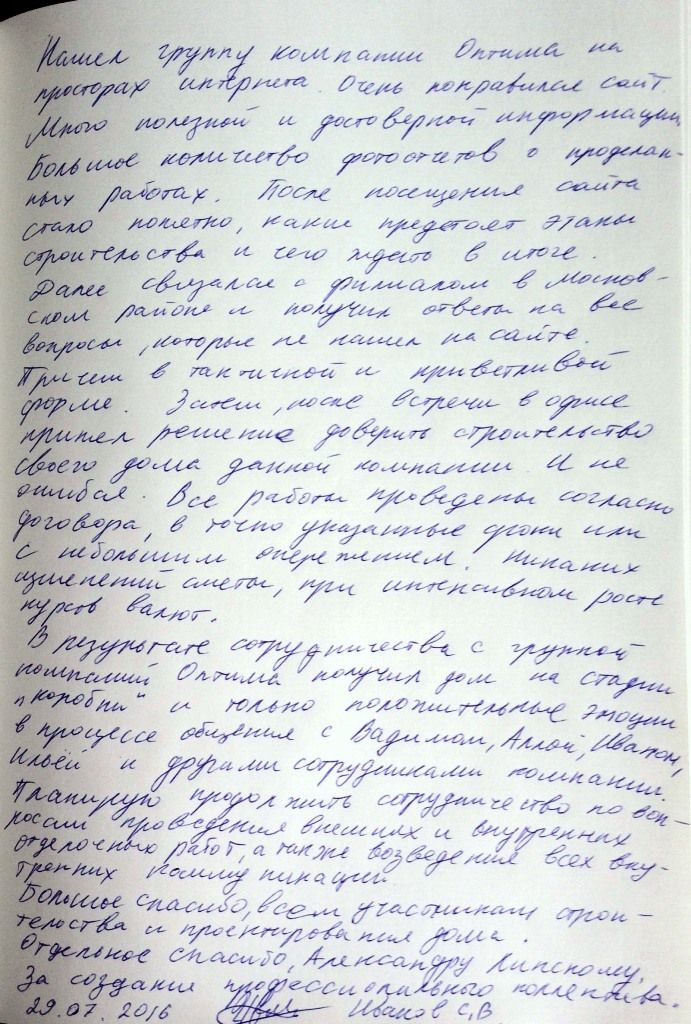 Нашел группу компании Оптима на
просторах интернета. Очень понравился сайт.
Много полезной и достоверной информации,
Большое количество фотоотчетов о проделан-
ных работах. После посещения сайта
стало понятно, какие предстоят этапы
строительства и чего ждать в итоге.
Далее связался с филиалом в Москов-
ском районе и получил ответы на все
вопросы, которые не нашел на сайте.
Причем в тактичной и приветливой
форме. Затем, после встречи в офисе
принял решение доверить строительство
своего дома данной компании. И не
ошибся. Все работы проведены согласно
договора, в точно указанные сроки или
с небольшим опережением. Никаких
изменений сметы, при интенсивном росте
курсов валют.
В результате сотрудничества с группой
компаний Оптима получил дом на стадии
„коробки" и только положительные эмоции
в процессе общения с Вадимом, Аллой, Иваном,
Ильёй и другими сотрудниками компании.
Планирую продолжить сотрудничество по воп-
росам проведения внешних и внутренних
отделочных работ, а также возведения всех вну-
тренних коммуникаций.
Большое спасибо, всем участникам строи-
тельства и проектирования дома.
Отдельное спасибо, Александру Липскому,
За создание профессионального коллектива.
29.07.2016 Иванов С.В